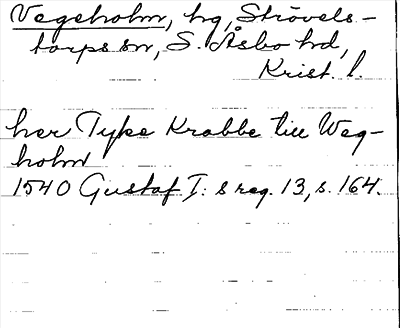 Vegeholm, hg, Strövels-
torps sn, S. Åsbo hd,
Krist. l.
her Tyke Krabbe till Weg-
holm
1540 Gustaf I: s reg. 13, s. 164.